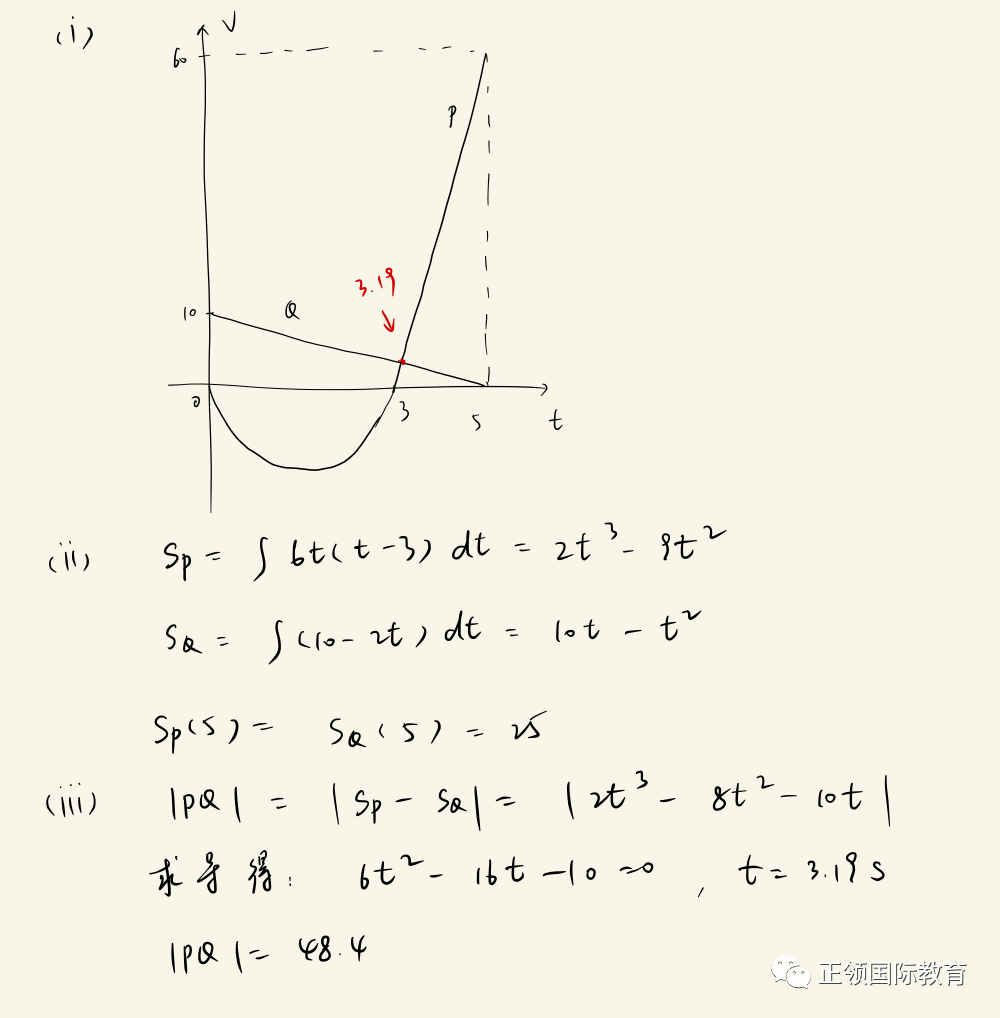 (i)
V
60
P
3.19
10
Q
0
3
5
t
(ii) Sp = ∫ 6t(t-3) dt = 2t³ - 9t²
SQ = ∫(10-2t) dt = 10t - t²
Sp(5) = SQ(5) = 25
(iii) |PQ| = |Sp - SQ| = |2t³ - 8t² - 10t|
求导得: 6t² - 16t - 10 = 0, t = 3.19 s
|PQ| = 48.4
正领国际教育